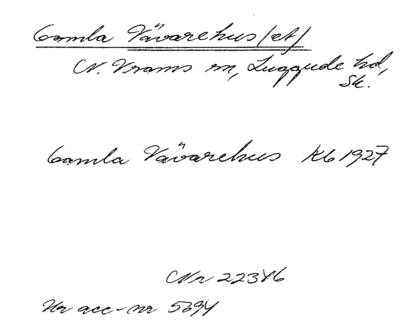 Gamla Vävarehus (et)
N. Vrams sn, Luggude hd,
Sk.
Gamla Vävarehus Kb 1927
Nr 22346
Ur acc-nr 5694